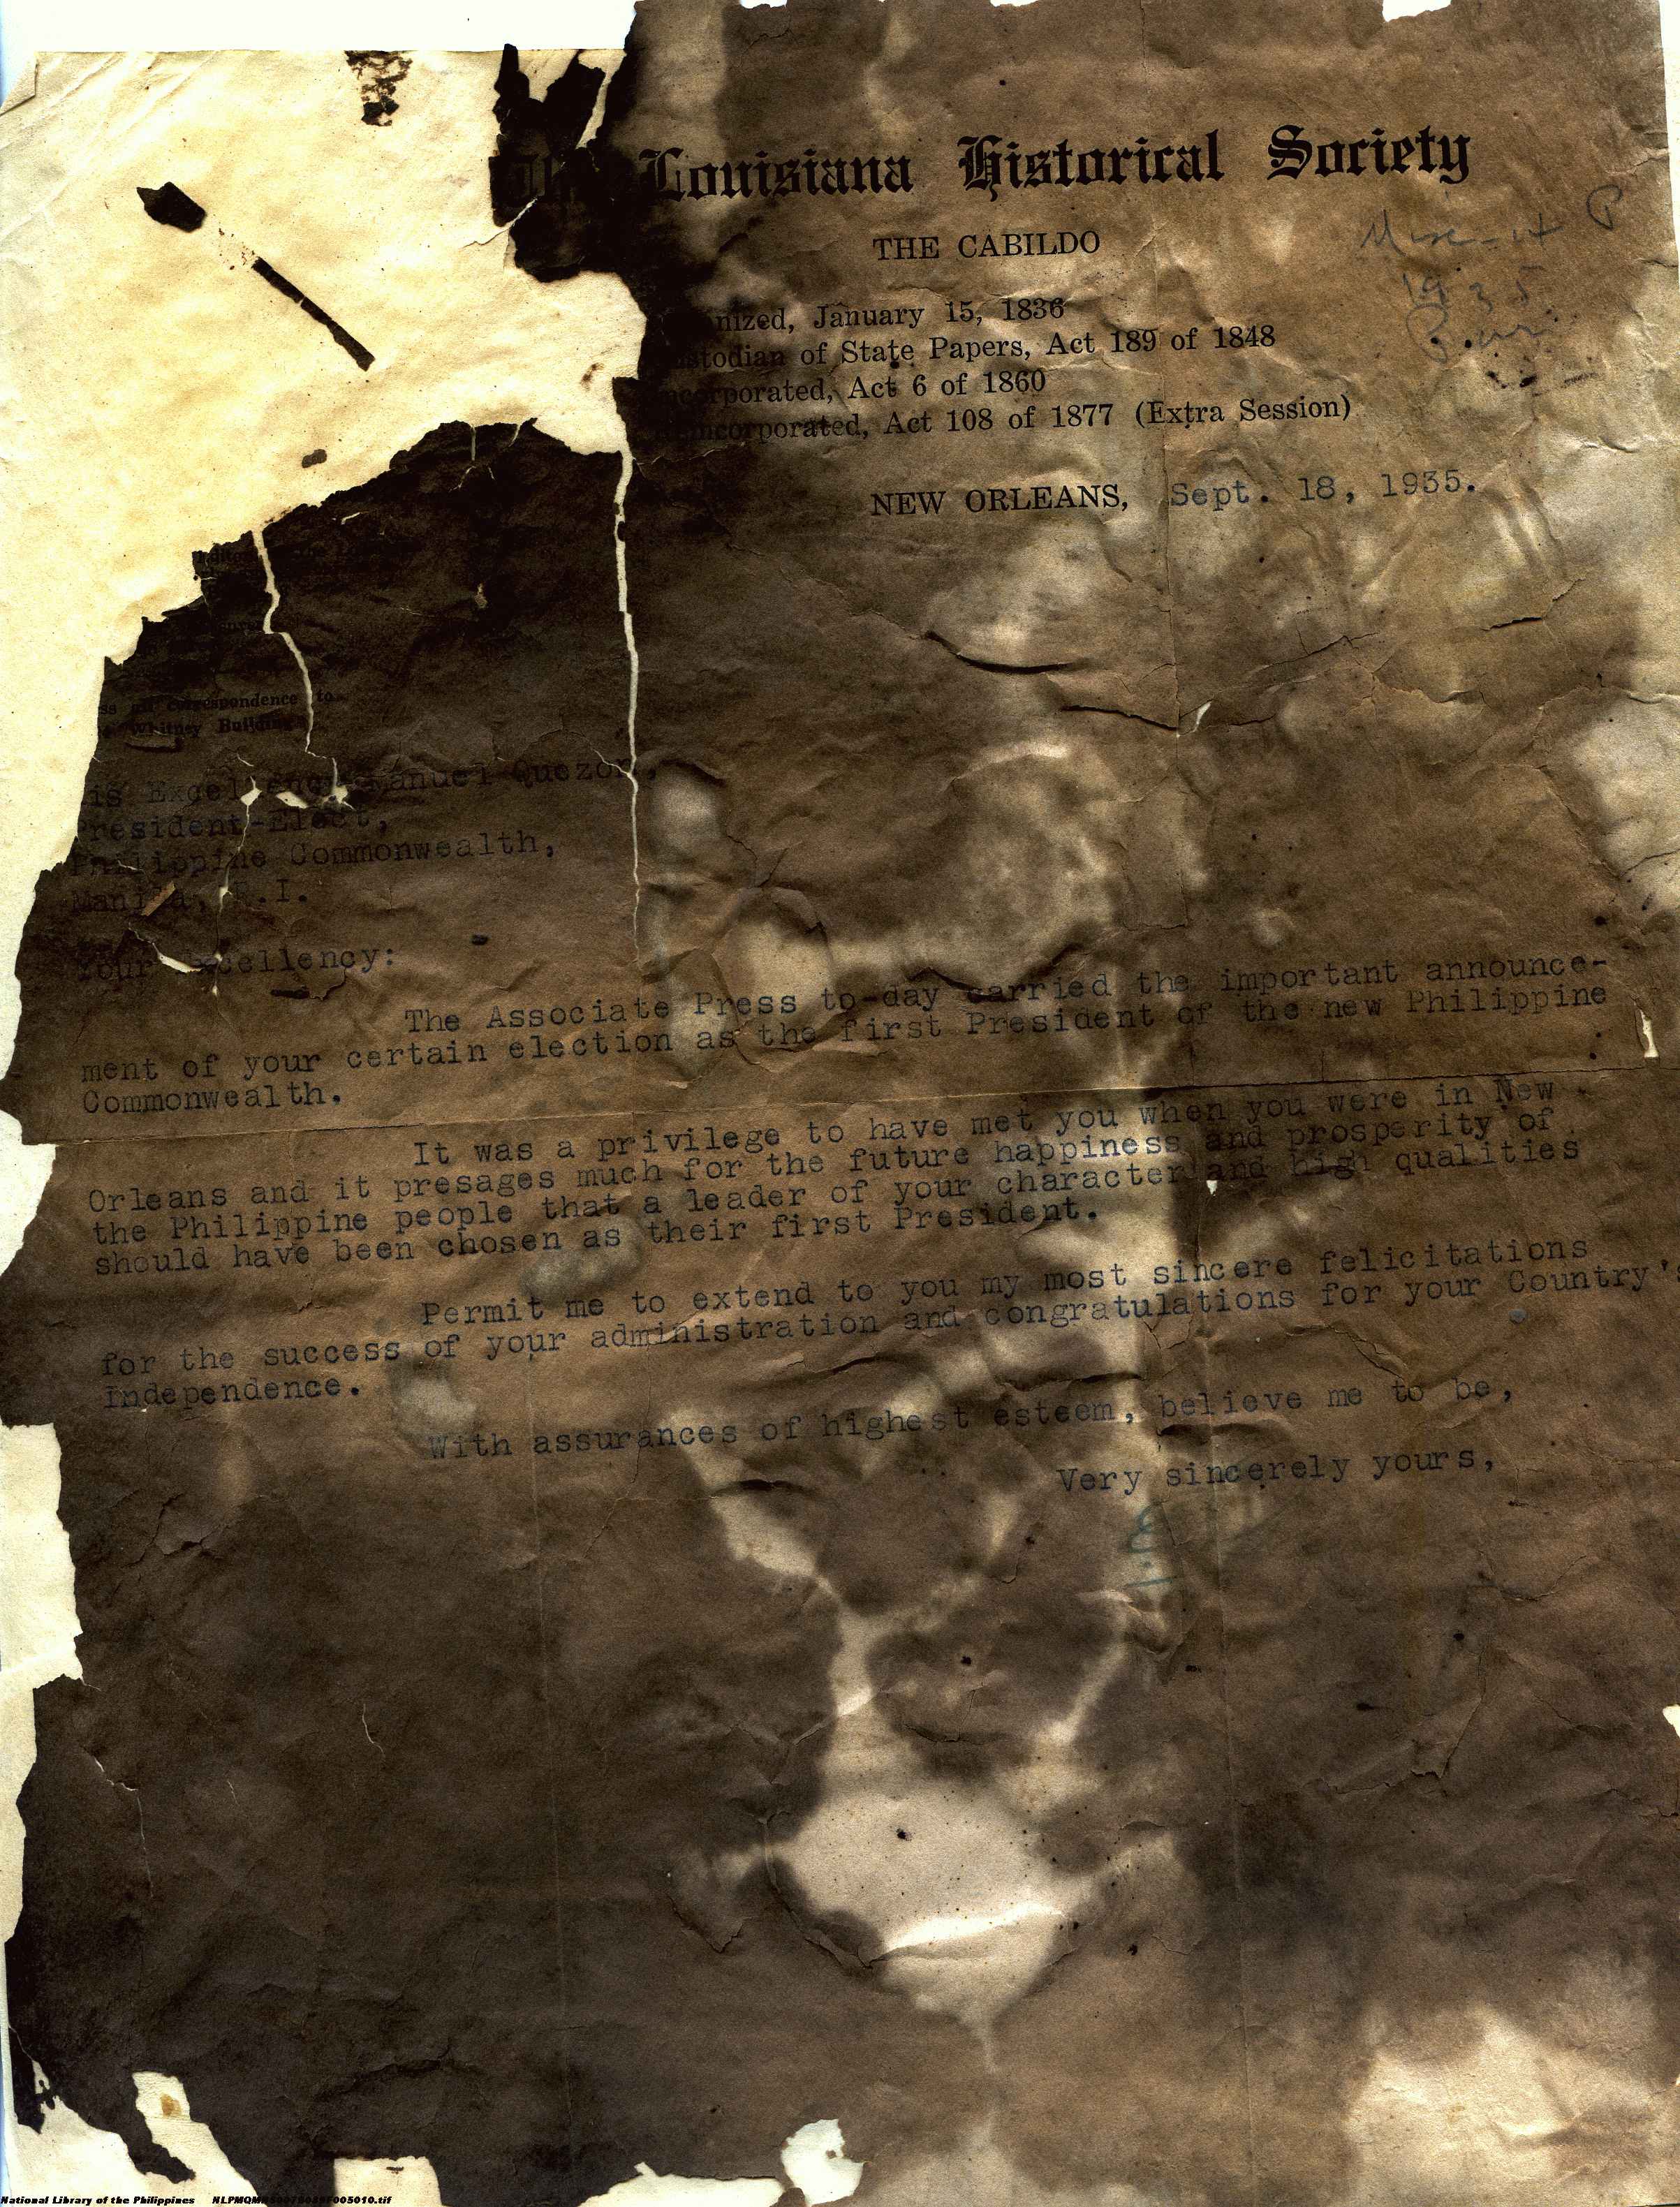 The Louisiana Historical Society
THE CABILDO
nized, January 15, 1836
ustodian of State Papers, Act 189 of 1848
ncorporated, Act 6 of 1860
incorporated, Act 108 of 1877 (Extra Session)
1935
NEW ORLEANS, Sept. 18, 1935.
ss all correspondence to
Whitney Building
is Excellency Manuel Quezon,
President-Elect,
Philippine Commonwealth,
Manila, P.I.
Your Excellency:
The Associate Press to-day carried the important announce-
ment of your certain election as the first President of the new Philippine
Commonwealth.
It was a privilege to have met you when you were in New
Orleans and it presages much for the future happiness and prosperity of
the Philippine people that a leader of your character and high qualities
should have been chosen as their first President.
Permit me to extend to you my most sincere felicitations
for the success of your administration and congratulations for your Country's
Independence.
With assurances of highest esteem, believe me to be,
Very sincerely yours,
National Library of the Philippines